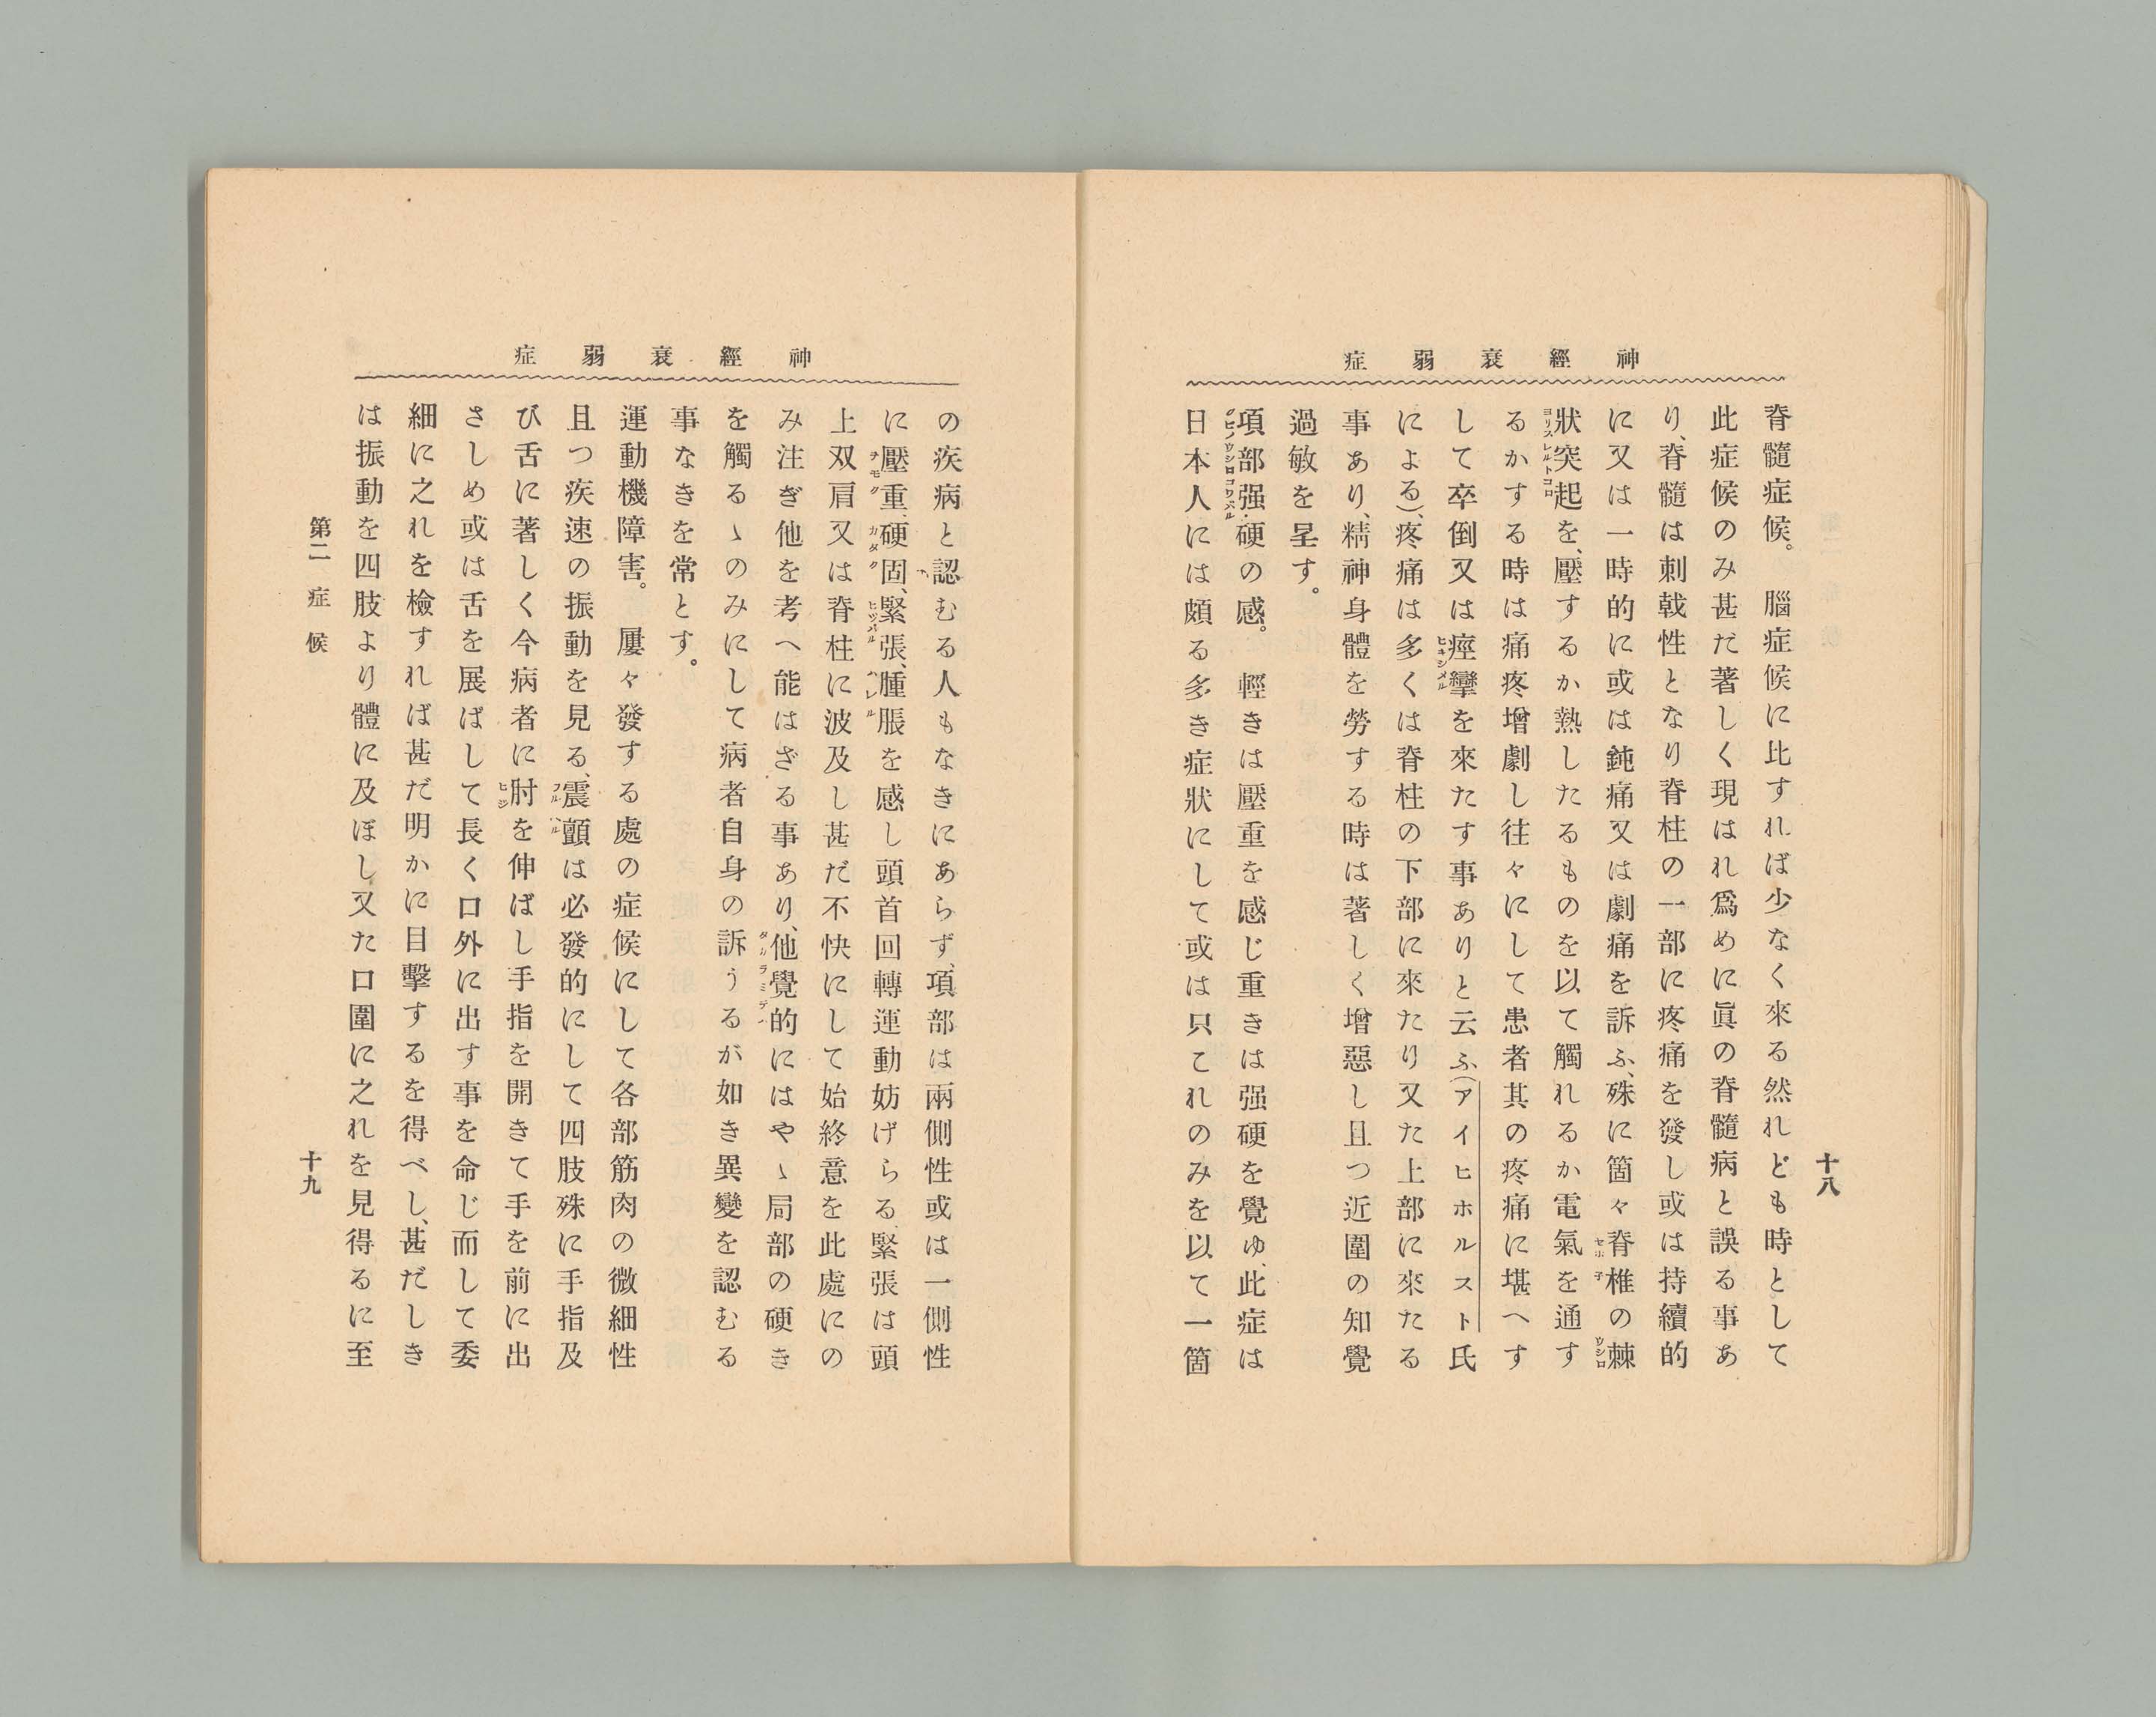 神經衰弱症
十八
脊髓症候。　腦症候に比すれば少なく來る然れども時として
此症候のみ甚だ著しく現はれ爲めに眞の脊髓病と誤る事あ
り、脊髓は刺戟性となり脊柱の一部に疼痛を發し或は持續的
に又は一時的に或は鈍痛又は劇痛を訴ふ、殊に箇々脊椎の棘
狀突起を、壓するか熱したるものを以て觸れるか電氣を通す
るかする時は痛疼增劇し往々にして患者其の疼痛に堪へす
して卒倒又は痙攣を來たす事ありと云ふ(アイヒホルスト氏
による)、疼痛は多くは脊柱の下部に來たり又た上部に來たる
事あり、精神身體を勞する時は著しく增惡し且つ近圍の知覺
過敏を呈す。
項部强硬の感。　輕きは壓重を感じ重きは强硬を覺ゆ、此症は
日本人には頗る多き症狀にして或は只これのみを以て一箇
神經衰弱症
の疾病と認むる人もなきにあらず、項部は兩側性或は一側性
に壓重、硬固、緊張、腫脹を感し頭首回轉運動妨げらる、緊張は頭
上双肩又は脊柱に波及し甚だ不快にして始終意を此處にの
み注ぎ他を考へ能はざる事あり、他覺的にはやゝ局部の硬き
を觸るゝのみにして病者自身の訴うるが如き異變を認むる
事なきを常とす。
運動機障害。　屢々發する處の症候にして各部筋肉の微細性
且つ疾速の振動を見る、震顫は必發的にして四肢殊に手指及
び舌に著しく今病者に肘を伸ばし手指を開きて手を前に出
さしめ或は舌を展ばして長く口外に出す事を命じ而して委
細に之れを檢すれば甚だ明かに目擊するを得べし、甚だしき
は振動を四肢より體に及ぼし又た口圍に之れを見得るに至
第二　症候
十九